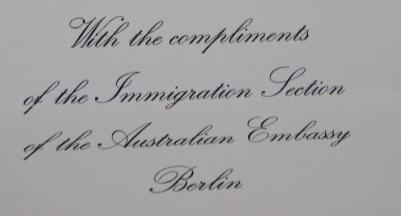 With the compliments
of the Immigration Section
of the Australian Embassy
Berlin